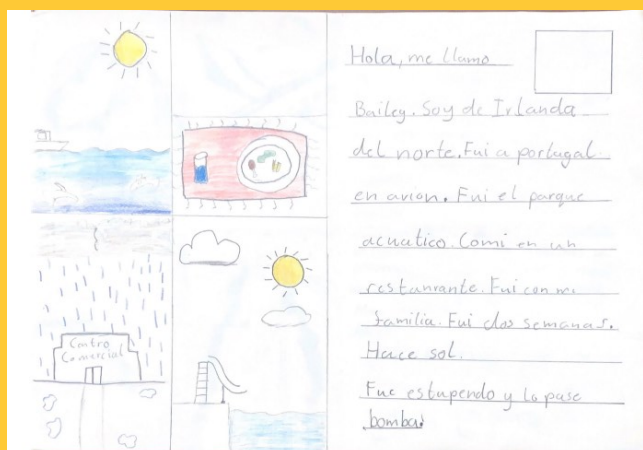 Centro
Comercial
Hola, me llamo
Bailey. Soy de Irlanda
del norte. Fui a portugal
en avion. Fui el parque
acuatico. Comi en un
restaurante. Fui con mi
familia. Fui dos semanas.
Hace sol.
Fue estupendo y lo pase
bomba.